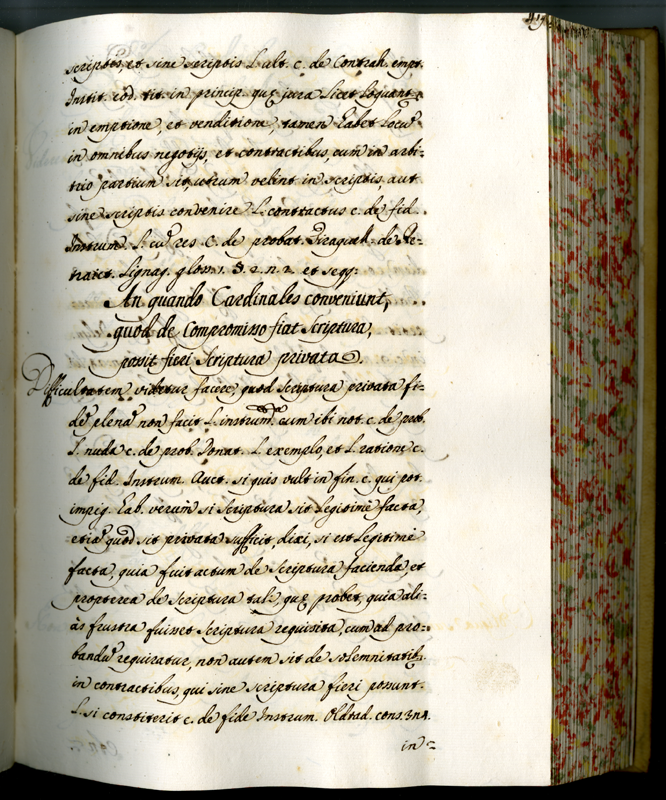 scriptis, et sine scriptis L. ult. c. de Contrah. empt.
Instit. eod. tit. in princip. quę jura licet loquant.
in emptione, et venditione, tamen habet locu
in omnibus negotijs, et contractibus, cum in arbi-
trio partium sit utrum velint in scriptis, aut
sine scriptis convenire L. contractus c. de fid.
Instrum. L. cu res C. de probat. Tiraquel. de Re-
tract. Lignag. glos. 1. §. 2. n. 2. et seqq:
An quando Cardinales conveniunt,
quod de Compromisso fiat Scriptura,
possit fieri Scriptura privata.
Difficultatem videtur facere, quod scriptura privata fi-
de plena non facit L. instrum. cum ibi not. c. de prob.
L. nuda c. de prob. Donat. L. exemplo, et L. ratione c.
de fid. Instrum. Auct. si quis vult in fin. c. qui pot.
in pig. hab. verum si scriptura sit legitimè facta,
etia quod sit privata sufficit, dixi, si est legitimè
facta, quia fuit actum de scriptura facienda, et
propterea de scriptura tali, quę probet, quia ali-
às frustra fuisset scriptura requisita, cum ad pro-
bandu requiratur, non autem sit de solemnitatib.
in contractibus, qui sine scriptura fieri possunt.
L. si constiterit c. de fide Instrum. Oldrad. cons. 3 n 4.
in